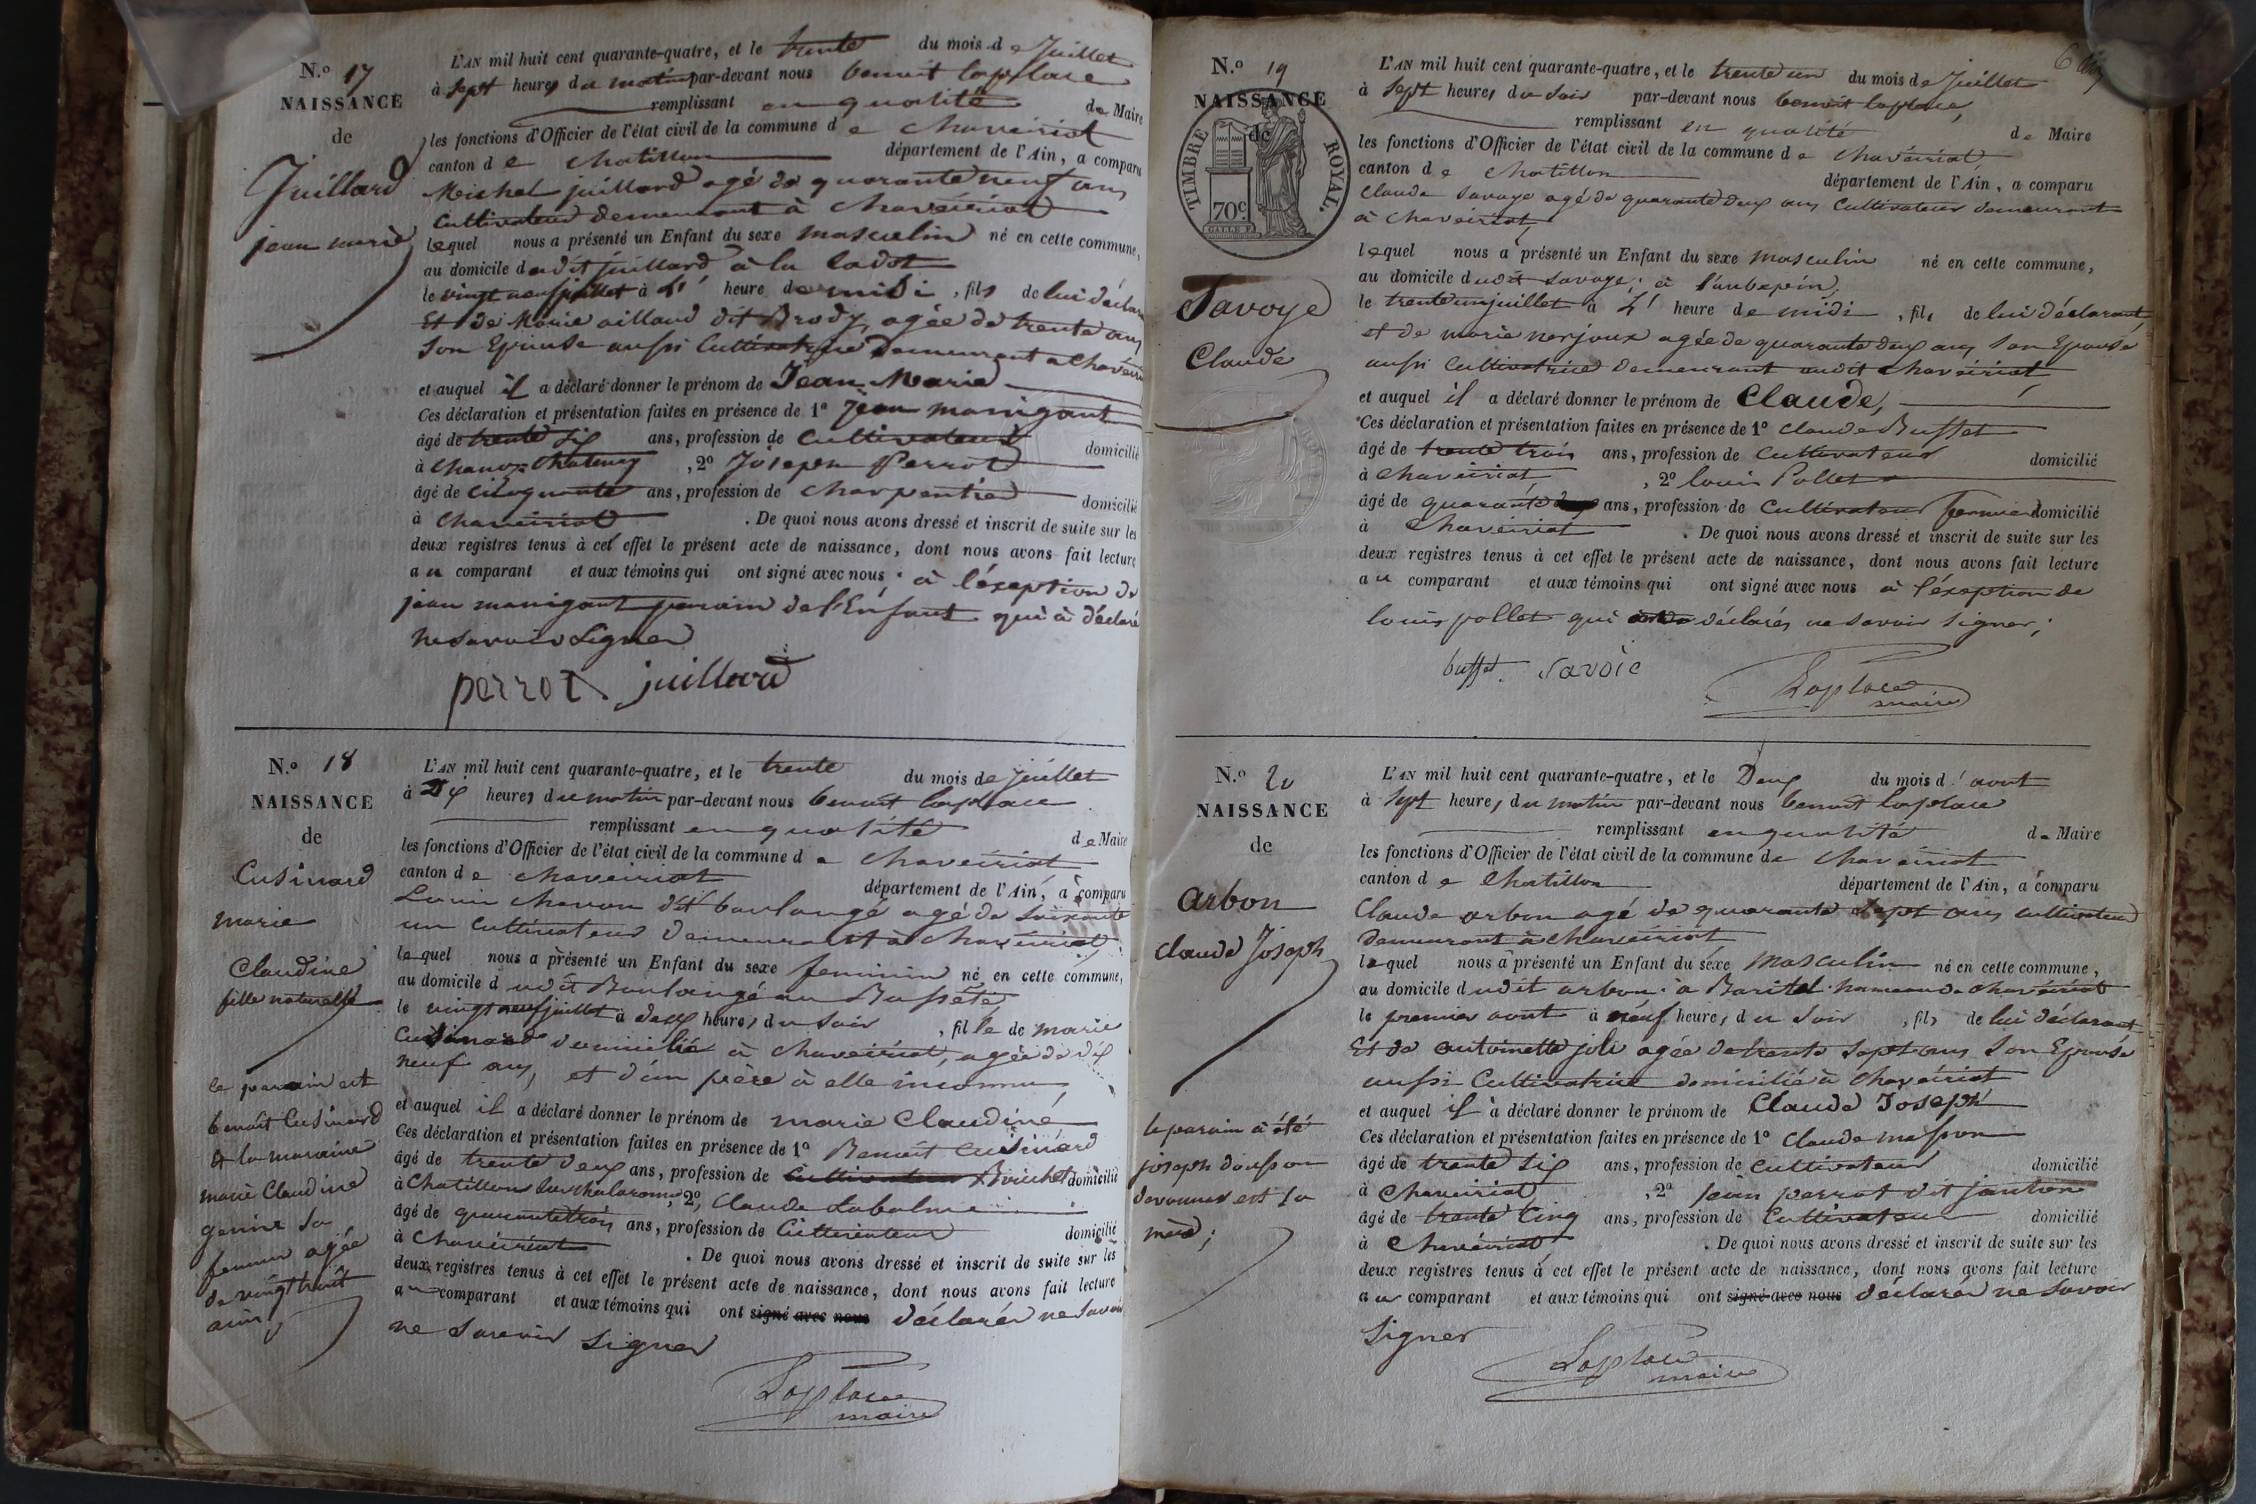 N.o 17
NAISSANCE
de
Juillard
jean marie
L'AN mil huit cent quarante-quatre, et le trente du mois de Juillet
à sept heures du matin par-devant nous benoit laplace
remplissant en qualité de Maire
les fonctions d'Officier de l'état civil de la commune de chaveiriat
canton de chatillon département de l'Ain, a comparu
Michel juillard agé de quarante neuf ans
Cultivateur demeurant à chaveiriat
lequel nous a présenté un Enfant du sexe masculin né en cette commune,
au domicile dudit juillard à la
le vingt neuf juillet à L' heure de midi, fils de lui déclarant
Et de Marie aillaud dit Brody, agée de trente ans
Son Epouse aussi Cultivatrice demeurant a chaveiriat
et auquel il a déclaré donner le prénom de Jean Marie
Ces déclaration et présentation faites en présence de 1º jean manigant
âgé de trente six ans, profession de cultivateur domicilié
à chanoz chatenay, 2º Joseph Perrot
âgé de cinquante ans, profession de charpentier domicilié
à chaveiriat. De quoi nous avons dressé et inscrit de suite sur les
deux registres tenus à cet effet le présent acte de naissance, dont nous avons fait lecture
au comparant et aux témoins qui ont signé avec nous à l'éxeption de
jean manigant parain de l'Enfant qui à déclaré
ne savoir signer
perrot juillard
N.o 18
NAISSANCE
de
Cusinard
marie
Claudine
fille naturelle
le parain est
benoît Cusinard
et la maraine
marie Claudine
sa
femme agée
de vingt huit
ans
L'AN mil huit cent quarante-quatre, et le trente du mois de juillet
à Dix heures du matin par-devant nous benoit laplace
remplissant en qualité de Maire
les fonctions d'Officier de l'état civil de la commune de chaveiriat
canton de chaveiriat département de l'Ain, a comparu
Louis dit boulangé agé de soixante
un Cultivateur demeurant à chaveiriat
lequel nous a présenté un Enfant du sexe feminin né en cette commune,
au domicile dudit Boulangé au
le vingt neuf juillet à deux heures du soir, fille de marie
Cusinard domicilié à chaveiriat, agée de dix
neuf ans, et d'un père à elle inconnu
et auquel il a déclaré donner le prénom de marie Claudine
Ces déclaration et présentation faites en présence de 1º Benoit Cusinard
âgé de trente deux ans, profession de cultivateur domicilié
à Chatillon sur chalaronne, 2º, Claude Labalme
âgé de quarante trois ans, profession de Cultivateur domicilié
à Chaveiriat. De quoi nous avons dressé et inscrit de suite sur les
deux registres tenus à cet effet le présent acte de naissance, dont nous avons fait lecture
au comparant et aux témoins qui ont signé avec nous déclarés ne savoir
ne savoir signer
Laplace
maire
N.o 19
NAISSANCE
de
TIMBRE ROYAL.
70c.
Savoye
Claude
L'AN mil huit cent quarante-quatre, et le trente un du mois de Juillet
à sept heures du soir par-devant nous benoit laplace,
remplissant en qualité de Maire
les fonctions d'Officier de l'état civil de la commune de chaveiriat
canton de chatillon département de l'Ain, a comparu
Claude savoye agé de quarante deux ans Cultivateur demeurant
à chaveiriat
lequel nous a présenté un Enfant du sexe masculin né en cette commune,
au domicile dudit savoye, à l'aubepin,
le trente un juillet à L' heure de midi, fils de lui déclarant
et de marie norjoux agée de quarante deux ans son Epouse
aussi Cultivatrice demeurant audit chaveiriat
et auquel il a déclaré donner le prénom de Claude,
Ces déclaration et présentation faites en présence de 1º Claude Buffet
âgé de trente trois ans, profession de cultivateur domicilié
à chaveiriat, 2º louis Pollet
âgé de quarante ans, profession de Cultivateur fermier domicilié
à Chaveiriat. De quoi nous avons dressé et inscrit de suite sur les
deux registres tenus à cet effet le présent acte de naissance, dont nous avons fait lecture
au comparant et aux témoins qui ont signé avec nous à l'éxeption de
louis pollet qui déclarés ne savoir signer;
buffet savoie
Laplace
maire
N.o 20
NAISSANCE
de
arbon
Claude Joseph
le parain à été
joseph
est la
L'AN mil huit cent quarante-quatre, et le Deux du mois d'aout
à sept heures du matin par-devant nous benoit laplace
remplissant en qualité de Maire
les fonctions d'Officier de l'état civil de la commune de chaveiriat
canton de Chatillon département de l'Ain, a comparu
Claude arbon agé de quarante sept ans cultivateur
demeurant à chaveiriat
lequel nous a présenté un Enfant du sexe masculin né en cette commune,
au domicile dudit arbon à Baritel hameau de chaveiriat
le premier aout à neuf heures du soir, fils de lui déclarant
Et de antoinette joli agée de trente sept ans Son Epouse
aussi Cultivatrice domicilié à chaveiriat
et auquel il a déclaré donner le prénom de Claude Joseph
Ces déclaration et présentation faites en présence de 1º Claude masson
âgé de trente six ans, profession de cultivateur domicilié
à chaveiriat, 2º jean perrot dit
âgé de trente cinq ans, profession de Cultivateur domicilié
à Chaveiriat. De quoi nous avons dressé et inscrit de suite sur les
deux registres tenus à cet effet le présent acte de naissance, dont nous avons fait lecture
au comparant et aux témoins qui ont signé avec nous déclarés ne savoir
signer
Laplace
maire